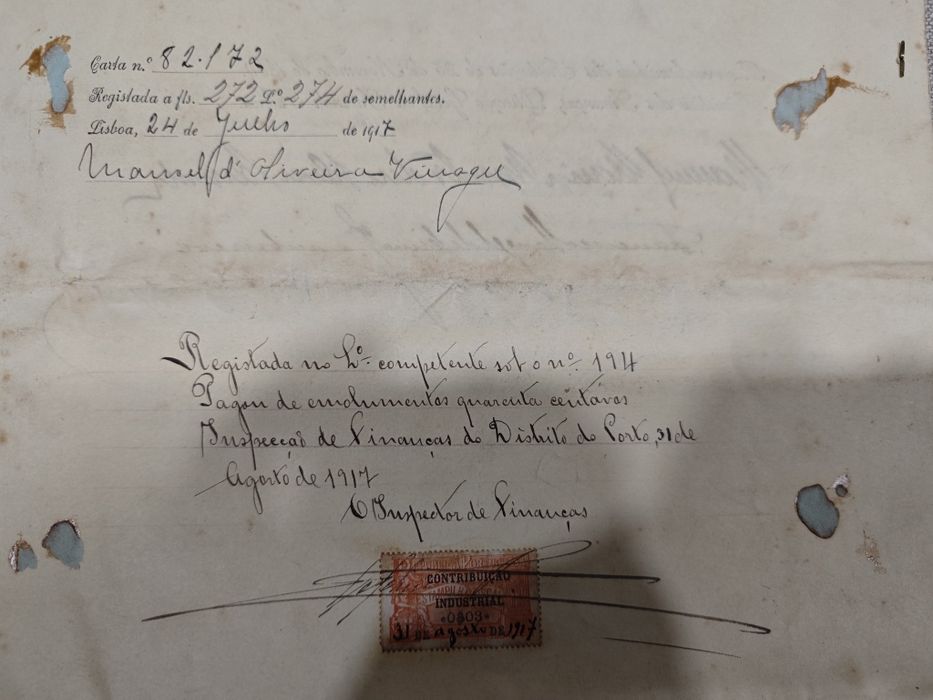 Carta n.º 82.172
Registada a fls. 272 L.º 274 de semelhantes.
Lisboa, 24 de Julho de 1917
Manuel d'Oliveira
Registada no L.º competente sob o nº 194
Pagou de emolumentos quarenta centavos
Inspecção de Finanças do Distrito do Porto, 31 de
Agosto de 1917
O Inspector de Finanças
CONTRIBUIÇÃO
INDUSTRIAL
31 DE Agosto DE 1917